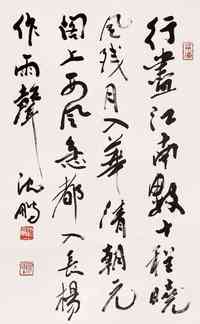 行盡江南數十程曉
風殘月入華清朝元
閣上西風急都入長楊
作雨聲 沈鵬